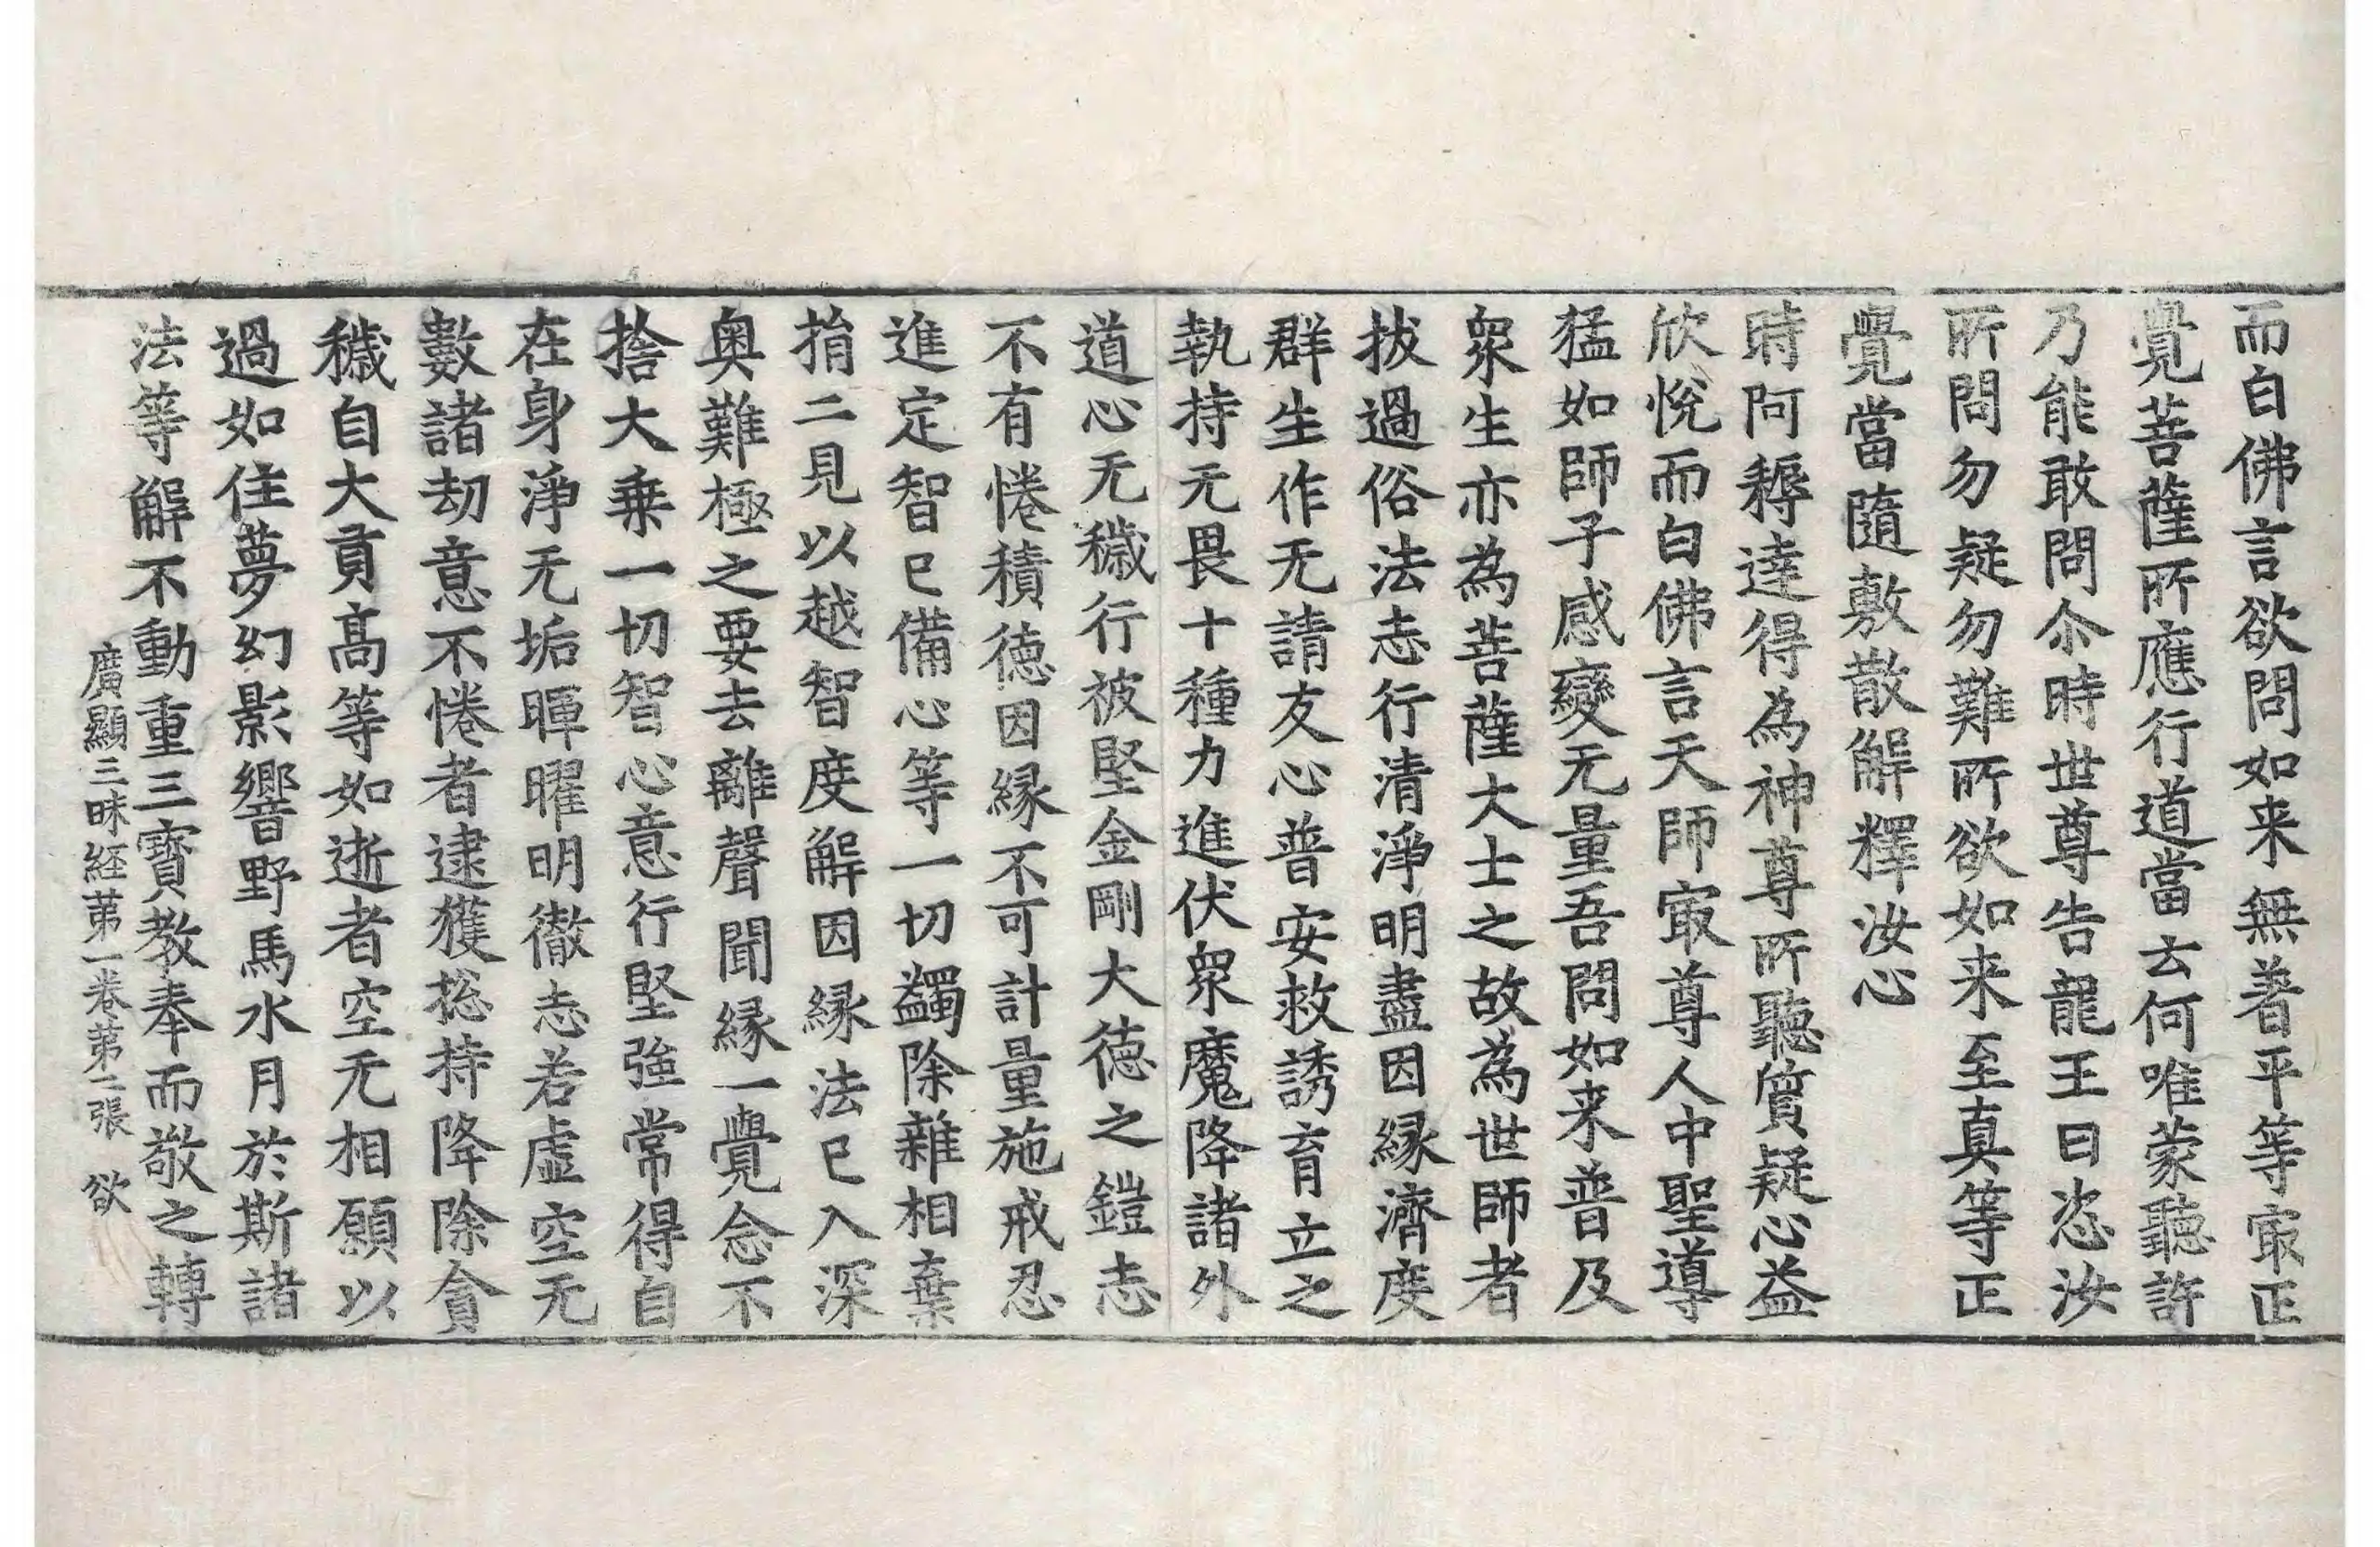 而白佛言欲問如来無著平等㝡正
覺菩薩所應行道當云何唯蒙聽許
乃能敢問尒時世尊告龍王曰恣汝
所問勿疑勿難所欲如来至真等正
覺當隨敷散解釋汝心
時阿耨達得為神尊所聽質疑心益
欣悅而白佛言天師㝡尊人中聖導
猛如師子感變无量吾問如来普及
衆生亦為菩薩大士之故為世師者
拔過俗法志行清淨明盡因緣濟度
群生作无請友心普安救誘育立之
執持无畏十種力進伏衆魔降諸外
道心无穢行被堅金剛大德之鎧志
不有惓積德因緣不可計量施戒忍
進定智已備心等一切蠲除雜相棄
捐二見以越智度解因緣法已入深
奥難極之要去離聲聞緣一覺念不
捨大乗一切智心意行堅強常得自
在身淨无垢暉曜明徹志若虛空无
數諸劫意不惓者逮獲捴持降除貪
穢自大貢髙等如逝者空无相願以
過如住夢幻影響野馬水月於斯諸
法等解不動重三寳教奉而敬之轉
廣顯三昧經苐一卷苐二張 欲